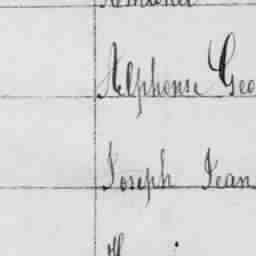 Alphonse Geo
Joseph Jean